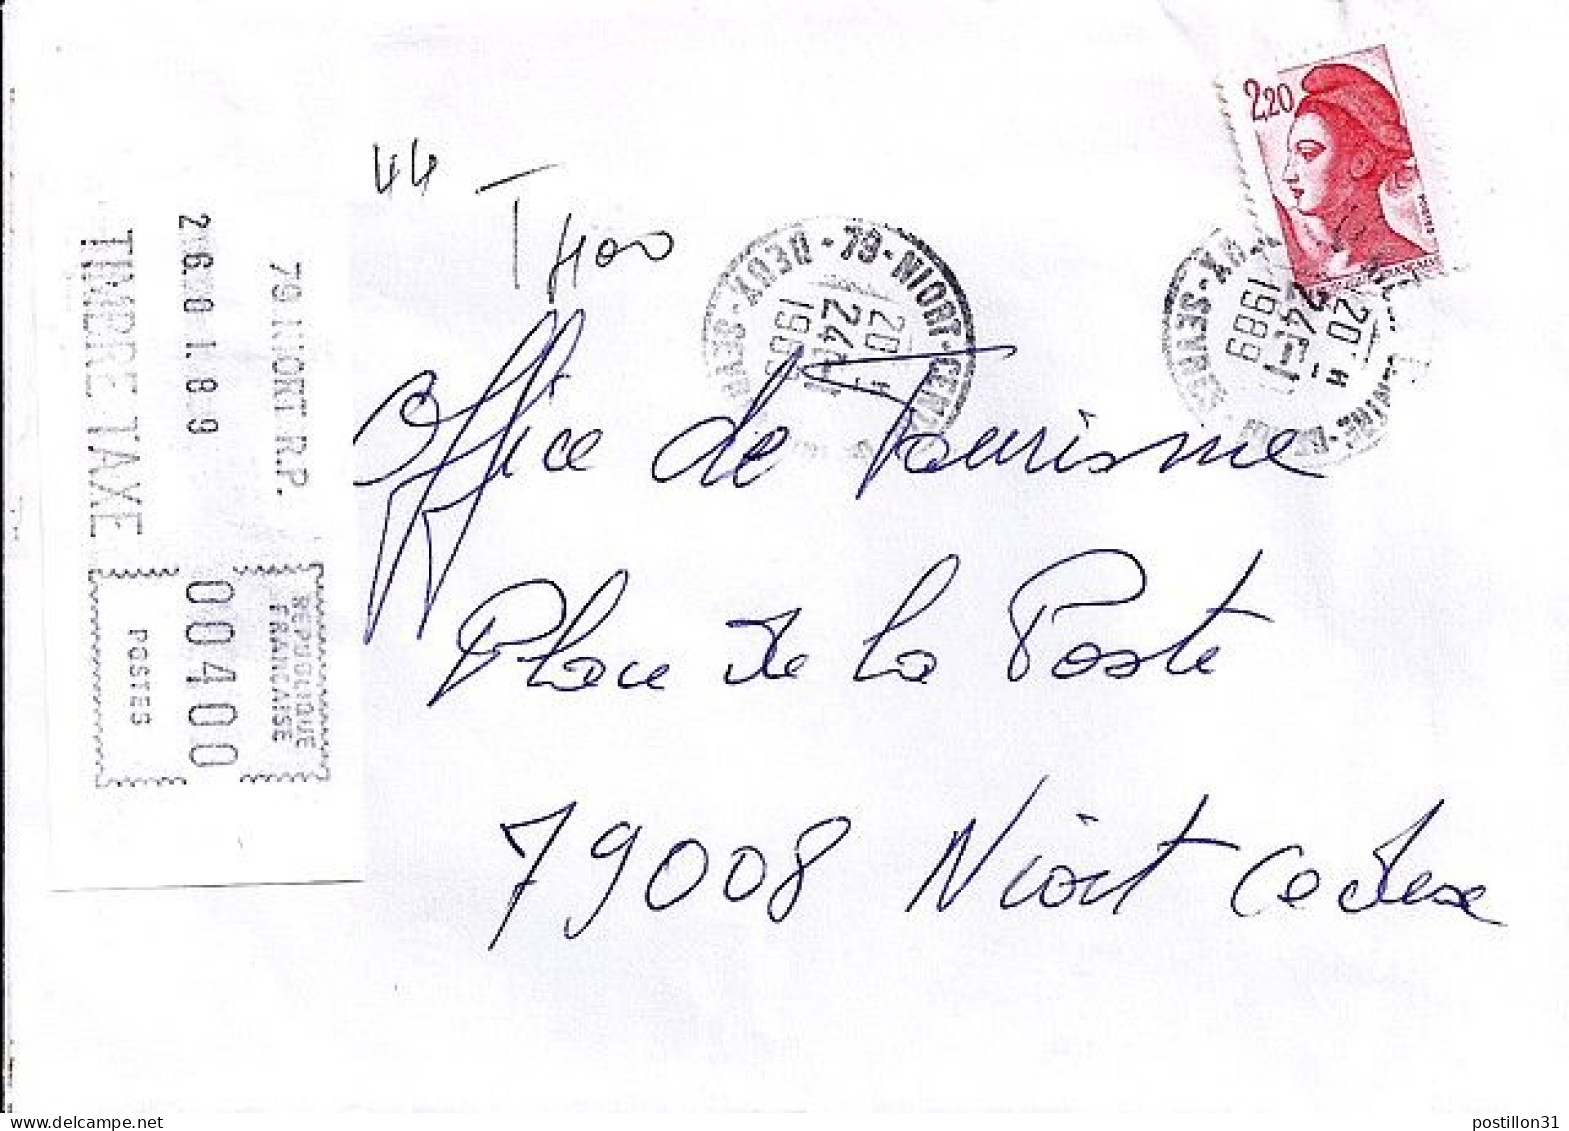 2,20
POSTES
44 T 400
79 - NIORT - CENTRE
DEUX-SEVRES
20 H
24 - 1
1989
20 H
24 - 1
1989
79.NIORT R.P.
26.01.89
TIMBRE TAXE
REPUBLIQUE
FRANCAISE
00400
POSTES
Office de Tourisme
Place de la Poste
79008 Niort Cedex
postillon31